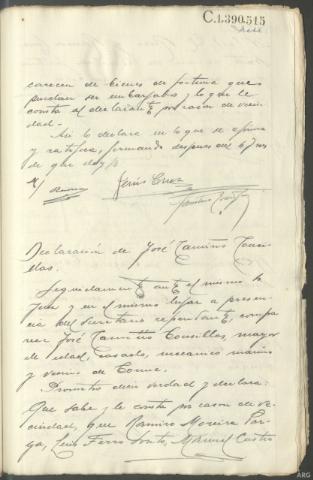 C.1.390.515
carecen de bienes de fortuna que
puedan ser embargados y lo que le
consta al declarante por razon de vecin
dad.-
Asi lo declara en lo que se afirma
y ratifica, firmando despues de
de que doy fe
Jesús
Declaración de José Camiño Cousi
llas.
Seguidamente ante el mismo Sr
Juez y en el mismo lugar a presen
cia del Secretario repontante, compa
rece José Camiño Cousillas, mayor
de edad, casado, mecanico marino
y vecino de Corme.
Prometió decir verdad y declara:
Que sabe y le consta por razon de ve
cindad, que Ramiro Moreira Par
ga, Luis Ferro Souto, Manuel Castro
ARG